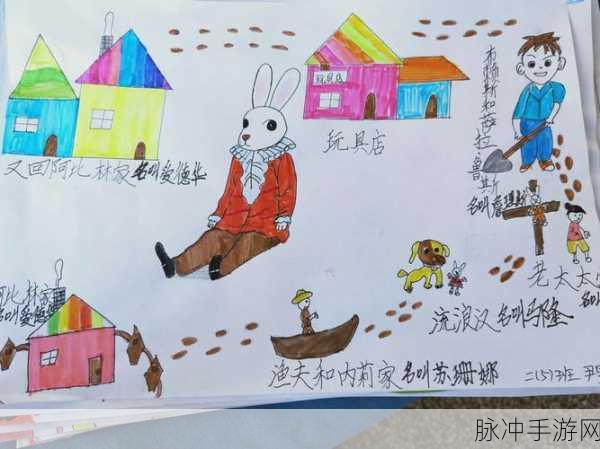 玩具店
布赖斯和萨拉鲁斯
名叫詹理斯
又回阿比林家名叫爱德华
老太太
名叫
流浪汉名叫马隆
阿比林家
名叫爱德华
渔夫和内莉家名叫苏珊娜
二(5)班
脉冲手游网